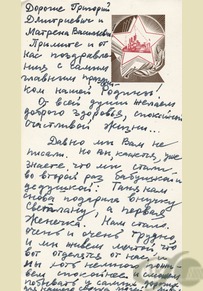 Дорогие Григорий
Дмитриевич и
Матрена Васильевна
Примите и от
нас поздравле
ния с самым
главным празд
ком нашей Родины!
От всей души желаем
доброго здоровья, спокойной
счастливой жизни...
Давно мы Вам не
писали. Но Вы, кажется, уже
знаете что мы стали
во второй раз бабушкой и
дедушкой: Таня нам
снова подарила внучку
Светлану, а первая
Женечка. Нам стало
очень и очень трудно,
и мы живем мечтой что
вот отделятся от нас и
мы хоть немного
вем спокойнее и сможем
побывать у самых